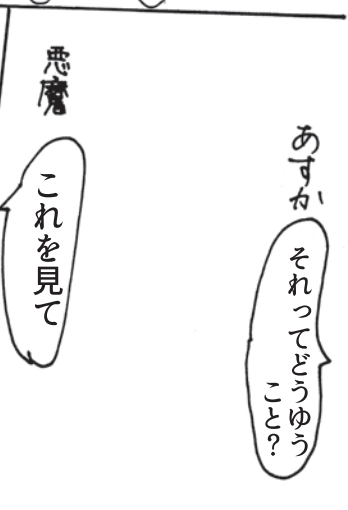 あすか
それってどうゆう
こと?
悪魔
これを見て